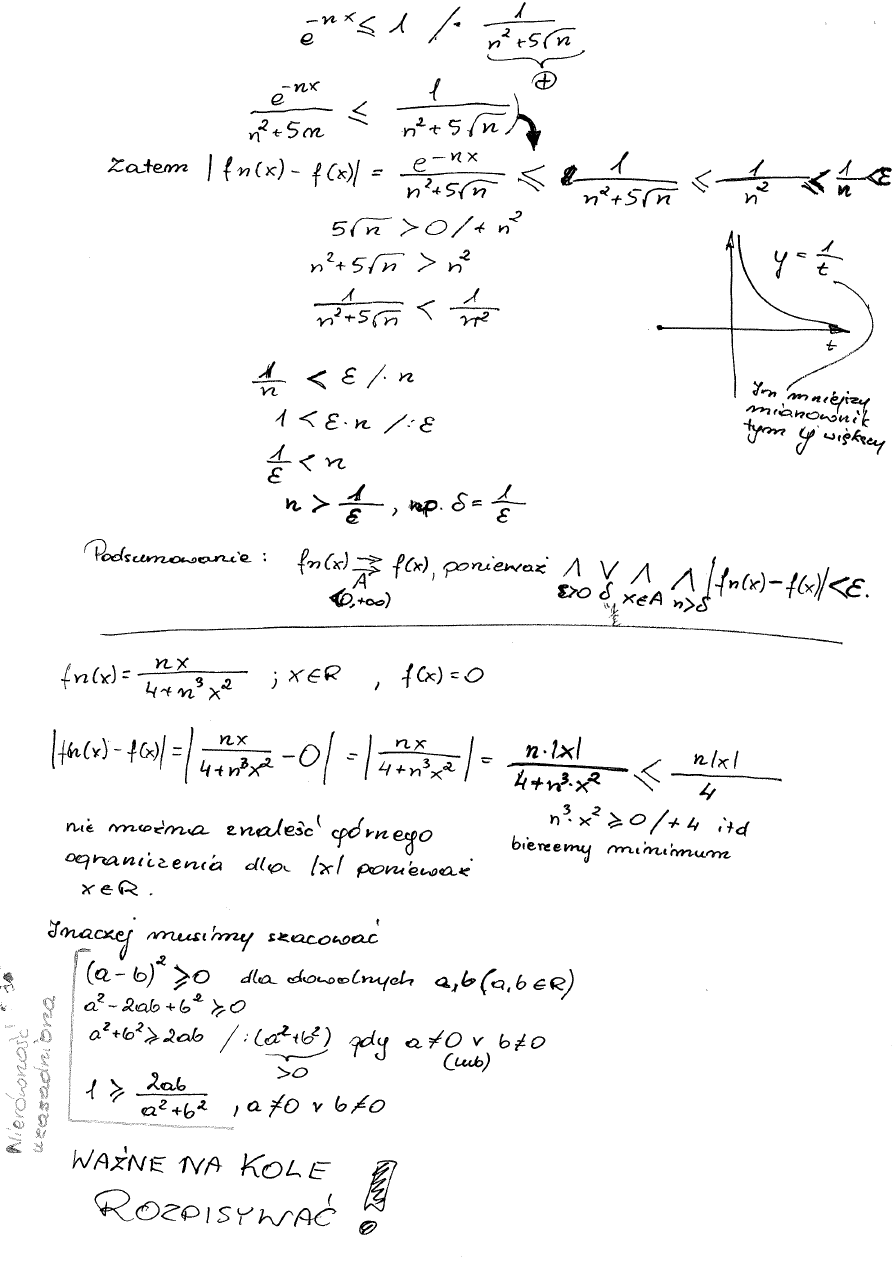 e^{-nx} ≤ 1 / · 1/(n²+5√n)
⊕
e^{-nx}/(n²+5√n) ≤ 1/(n²+5√n)
Zatem |fn(x) - f(x)| = e^{-nx}/(n²+5√n) ≤ 1/(n²+5√n) ≤ 1/n² ≤ 1/n < ε
5√n > 0 /+ n²
n²+5√n > n²
1/(n²+5√n) < 1/n²
y = 1/t
t
Im mniejszy
mianownik
tym y większy
1/n < ε / · n
1 < ε · n / : ε
1/ε < n
n > 1/ε , np. δ = 1/ε
Podsumowanie : fn(x) ⇉ f(x), ponieważ ⋀ ⋁ ⋀ ⋀ |fn(x) - f(x)| < ε.
A ε>0 δ x∈A n>δ
<0,+∞)
fn(x) = nx/(4+n³x²) ; x∈R , f(x) = 0
|fn(x) - f(x)| = |nx/(4+n³x²) - 0| = |nx/(4+n³x²)| = n·|x|/(4+n³·x²) ≤ n|x|/4
n³·x² ≥ 0 /+4 itd
bierzemy minimum
nie można znaleść górnego
ograniczenia dla |x| ponieważ
x∈R.
Inaczej musimy szacować
(a-b)² ≥ 0 dla dowolnych a,b (a,b∈R)
a² - 2ab + b² ≥ 0
a²+b² ≥ 2ab / : (a²+b²) gdy a≠0 ∨ b≠0
>0 (lub)
1 ≥ 2ab/(a²+b²) , a≠0 ∨ b≠0
Nierówność
uzasadniona
WAŻNE NA KOLE
ROZPISYWAĆ !